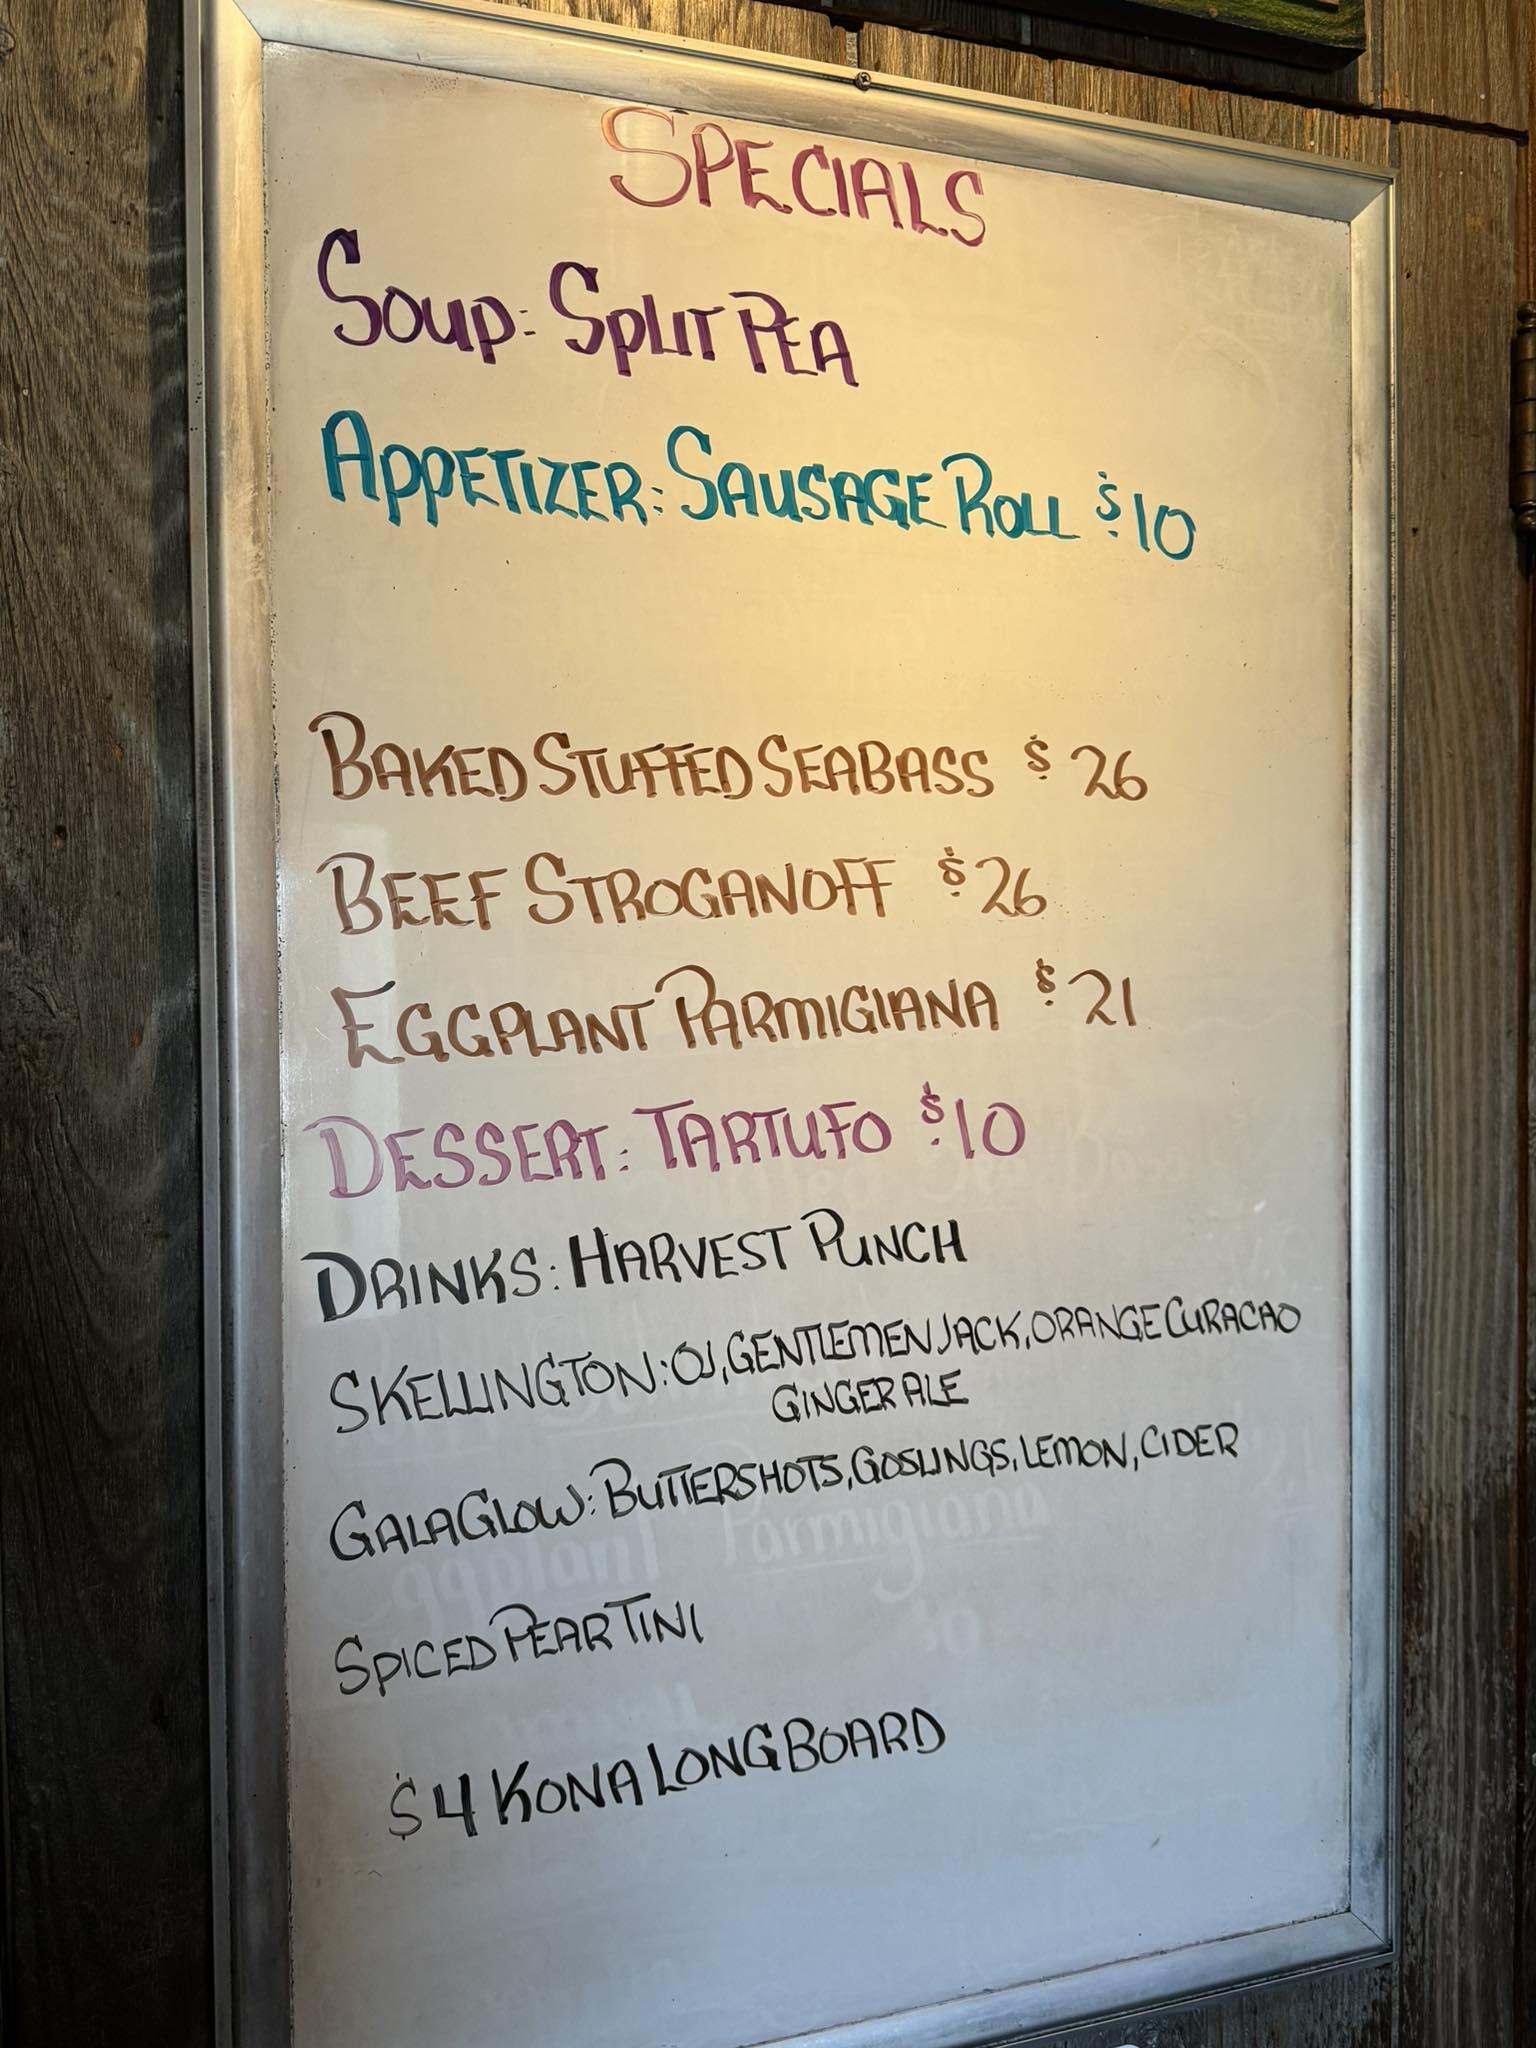 SPECIALS
SOUP: SPLIT PEA
APPETIZER: SAUSAGE ROLL $10
BAKED STUFFED SEABASS $26
BEEF STROGANOFF $26
EGGPLANT PARMIGIANA $21
DESSERT: TARTUFO $10
DRINKS: HARVEST PUNCH
SKELLINGTON: OJ, GENTLEMEN JACK, ORANGE CURACAO
GINGER ALE
GALA GLOW: BUTTERSHOTS, GOSLINGS, LEMON, CIDER
SPICED PEAR TINI
$4 KONA LONG BOARD